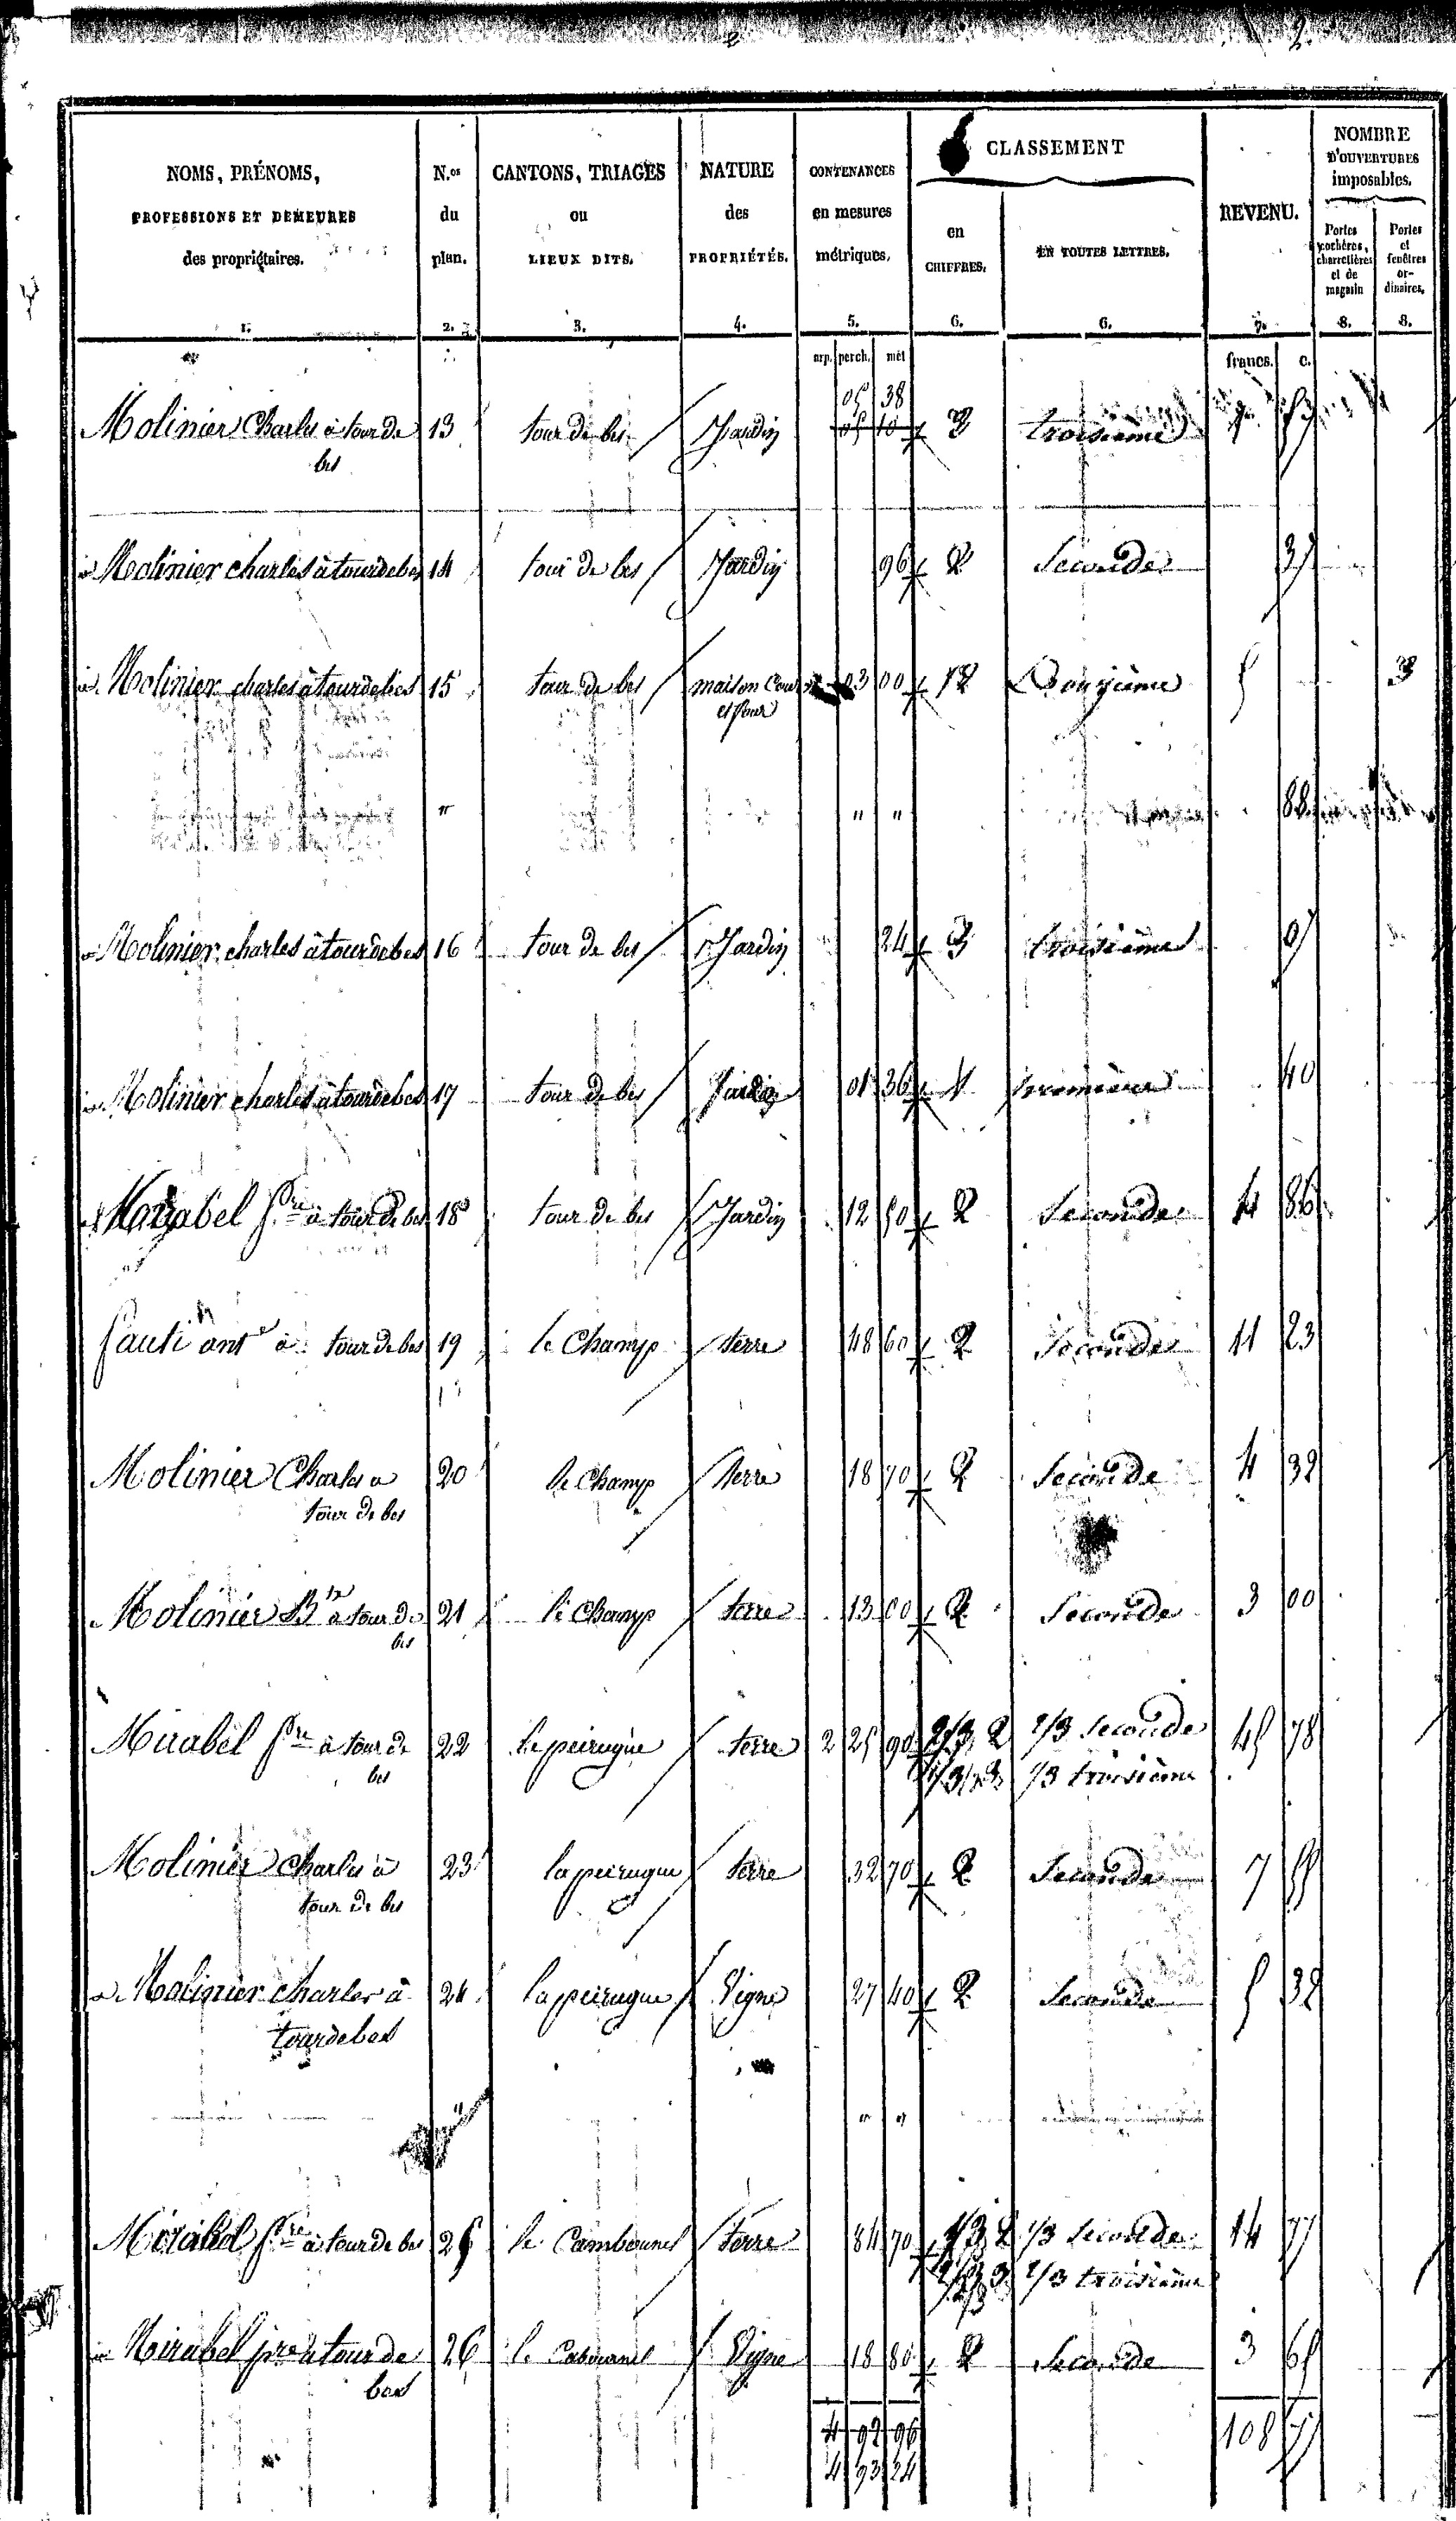 2
NOMS, PRÉNOMS, PROFESSIONS ET DEMEURES des propriétaires. N.os du plan. CANTONS, TRIAGES ou LIEUX DITS. NATURE des PROPRIÉTÉS. CONTENANCES en mesures métriques. CLASSEMENT en CHIFFRES. EN TOUTES LETTRES. REVENU. NOMBRE D'OUVERTURES imposables. Portes cochères, charretières et de magasin Portes et fenêtres ordinaires.
1. 2. 3. 4. 5. 6. 6. 7. 8. 8.
arp. perch. mèt francs. c.
05 38
Molinier Charles à tour de 13 tour de bes Jardin 05 10 3 troisième
bes
Molinier charles à tourdebes 14 tour de bes Jardin 96 2 Seconde 37
Molinier charles à tourdebes 15 tour de bes maison Cour 03 00 12 Douzième 5 3
et four
" " " 88
Molinier charles à tourdebes 16 tour de bes Jardin 24 3 troisième 07
Molinier charles à tourdebes 17 tour de bes Jardin 01 36 1 première 40
pre à tour de bes 18 tour de bes Jardin 12 50 2 Seconde 4 86
ant à tour de bes 19 le Champ terre 48 60 2 Seconde 11 23
Molinier Charles a 20 le Champ terre 18 70 2 Seconde 4 32
tour de bes
Molinier Bte à tour de 21 le Champ terre 13 00 2 Seconde 3 00
bes
Mirabel pre à tour de 22 la peirugue terre 2 25 90 2/3 2 2/3 Seconde 45 78
bes 1/3 3 1/3 troisième
Molinier charles à 23 la peirugue terre 32 70 2 Seconde 7 55
tour de bes
Molinier charles à 24 la peirugue Vigne 27 40 2 Seconde 5 32
tourdebes
" " "
Mirabel pre à tour de bes 25 le Cambounel terre 84 70 1/3 2 1/3 Seconde 14 77
2/3 3 2/3 troisième
Mirabel pre à tour de 26 le Vigne 18 80 2 Seconde 3 65
bes
4 92 96 108 77
4 93 24